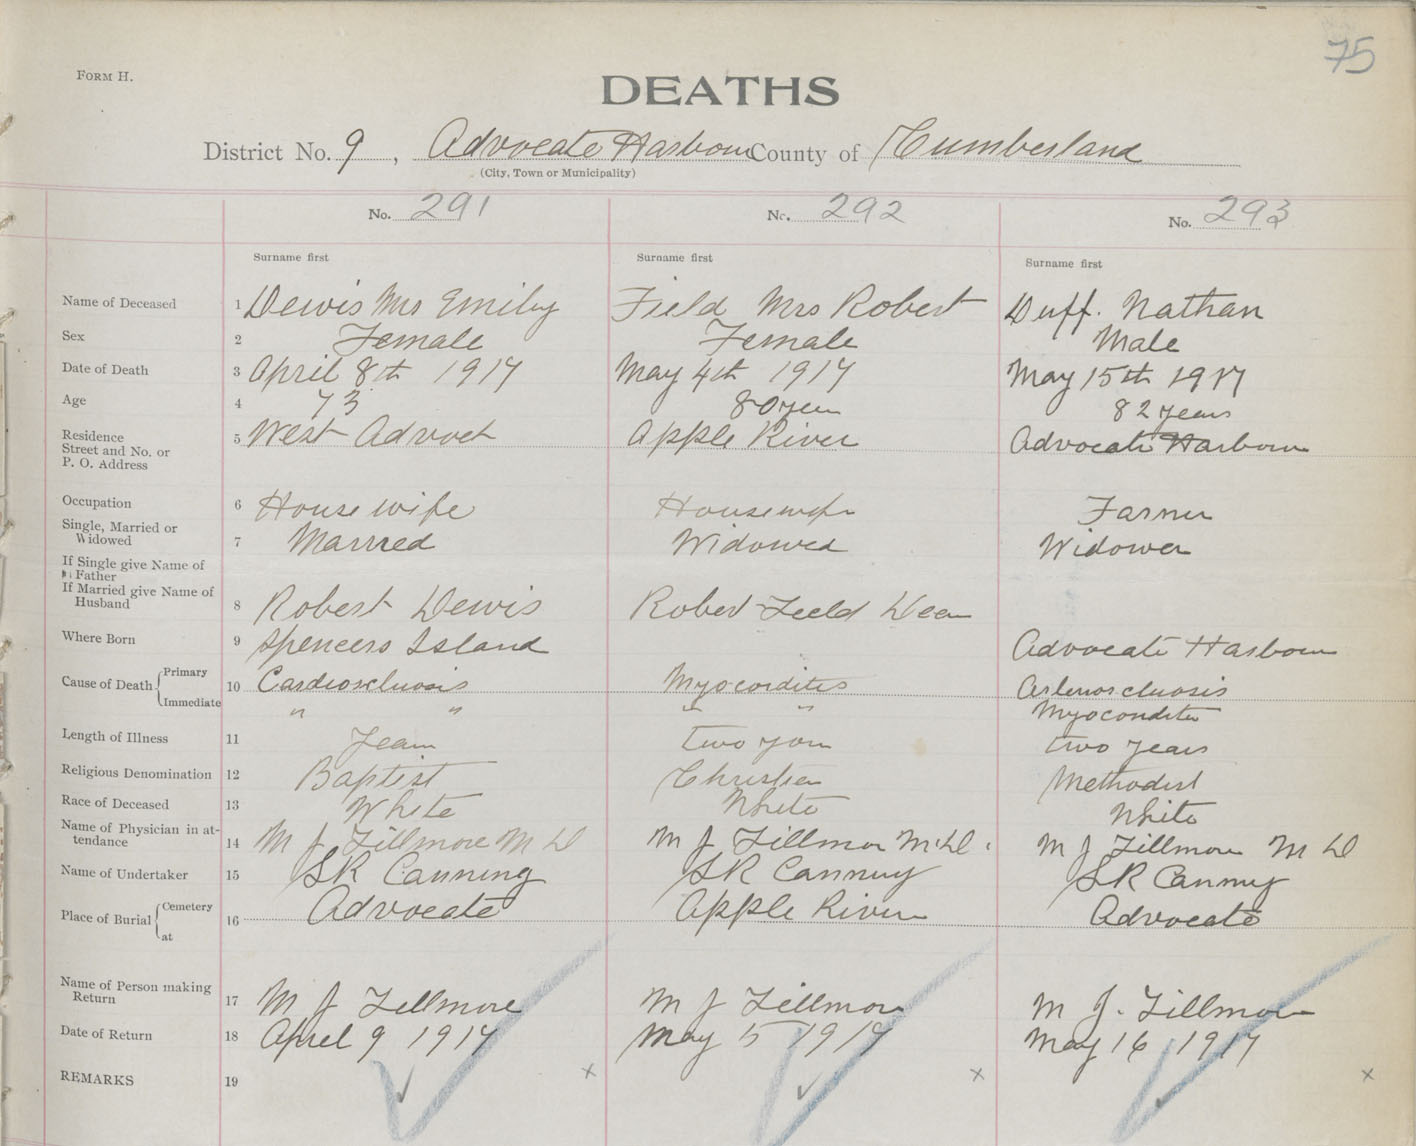 75
FORM H.
DEATHS
District No. 9, Advocate Harbour County of Cumberland
(City, Town or Municipality)
No. 291 No. 292 No. 293
Surname first Surname first Surname first
Name of Deceased 1 Dewis Mrs Emily Field Mrs Robert Duff. Nathan
Sex 2 Female Female Male
Date of Death 3 April 8th 1917 May 4th 1917 May 15th 1917
Age 4 73 80 years 82 years
Residence Street and No. or P. O. Address 5 West Advocet Apple River Advocate Harbour
Occupation 6 House wife Housewife Farmer
Single, Married or Widowed 7 Married Widowed Widower
If Single give Name of Father
If Married give Name of Husband 8 Robert Dewis Robert Field
Where Born 9 Spencers Island Advocate Harbour
Cause of Death Primary 10 Cardiosclerosis Myocorditis Arteriosclerosis
Immediate " " " " Myocorditis
Length of Illness 11 Years two years two years
Religious Denomination 12 Baptist Christian Methodist
Race of Deceased 13 White White White
Name of Physician in attendance 14 M J Fillmore M D M J Fillmore M.D. M J Fillmore M D
Name of Undertaker 15 SR Canning SR Canning SR Canning
Place of Burial Cemetery at 16 Advocate Apple River Advocate
Name of Person making Return 17 M J Fillmore M J Fillmore M J. Fillmore
Date of Return 18 April 9 1917 May 5 1917 May 16 1917
REMARKS 19 x x x